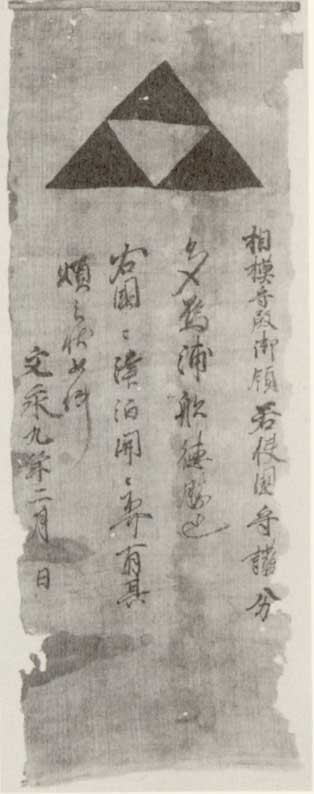 相模守殿御領若狭国守護分
多烏浦船徳勝也
右國々津泊関々不可有其
煩之状如件
文永九年二月　日